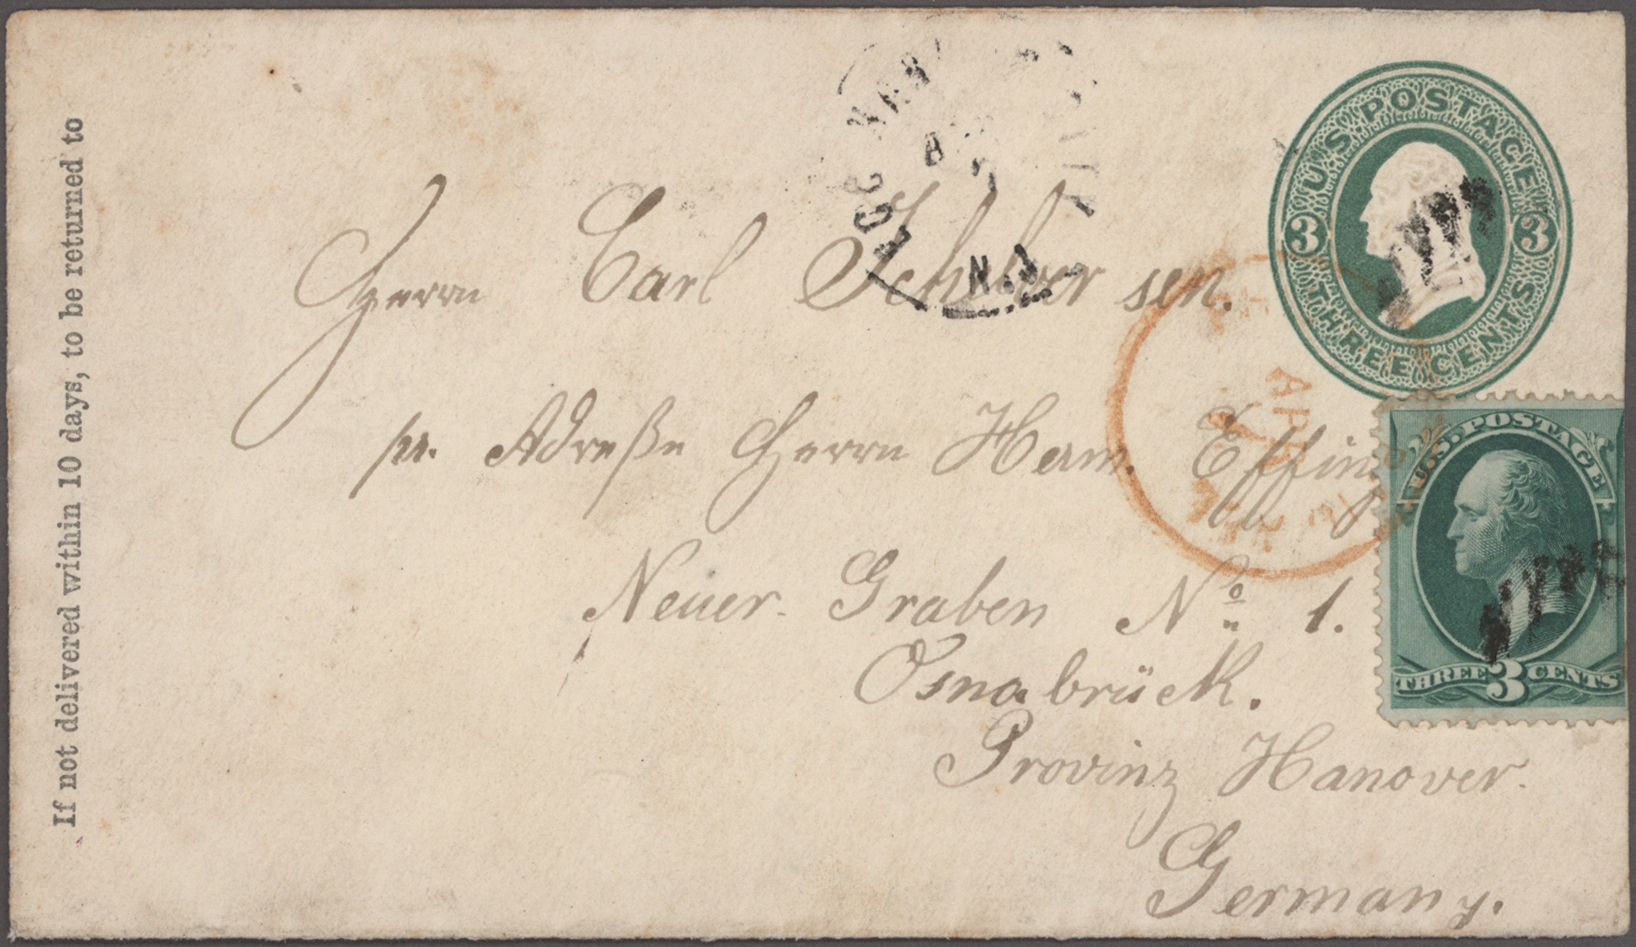 If not delivered within 10 days, to be returned to
U.S. POSTAGE
3 3
THREE CENTS
N.J.
Herrn Carl sen.
APR
pr. Adreße Herrn Herm.
U.S. POSTAGE
Neuer Graben No 1.
THREE 3 CENTS
Osnabrück.
Provinz Hanover.
Germany.